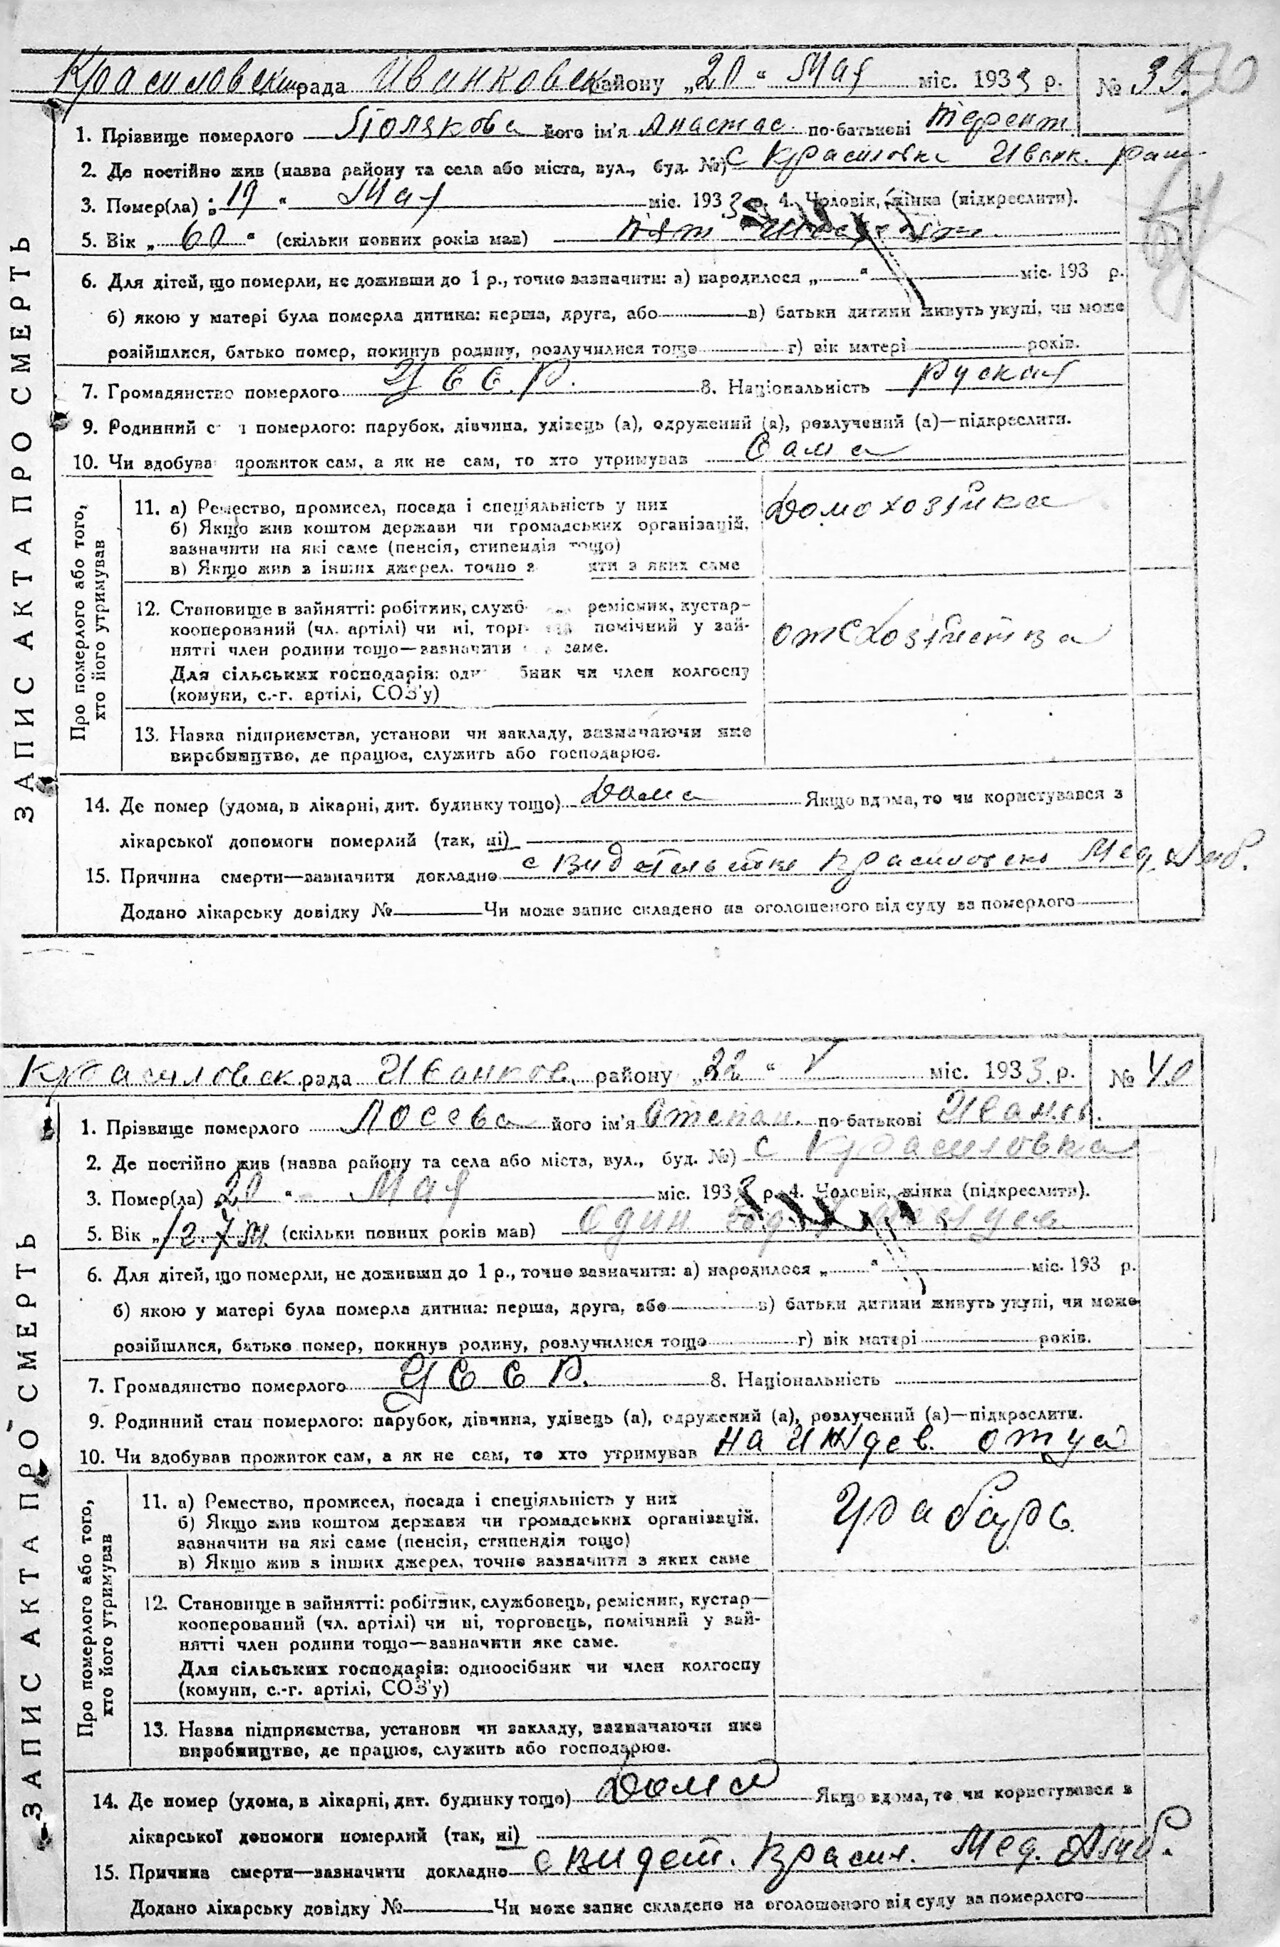 ЗАПИС АКТА ПРО СМЕРТЬ
Красиловск рада Иванковск району „20“ Мая міс. 1933 р. № 39
1. Прізвище померлого Полякова його ім'я Анастас. по-батькові Терент.
2. Де постійно жив (назва району та села або міста, вул., буд. №) с Красиловка Иванк. рай
3. Помер(ла) „19“ Мая міс. 1933 р. 4. Чоловік, жінка (підкреслити).
5. Вік „60“ (скільки повних років мав)
6. Для дітей, що померли, не доживши до 1 р., точно зазначити: а) народилося „ “ міс. 193 р.
б) якою у матері була померла дитина: перша, друга, або в) батьки дитини живуть укупі, чи може
розійшлися, батько помер, покинув родину, розлучилися тощо г) вік матері років.
7. Громадянство померлого УССР. 8. Національність Руская
9. Родинний с н померлого: парубок, дівчина, удівець (а), одружений (а), розлучений (а)—підкреслити.
10. Чи здобува прожиток сам, а як не сам, то хто утримував Сама
Про померлого або того,
хто його утримував
11. а) Ремество, промисел, посада і спеціяльність у них Домохозяйка
б) Якщо жив коштом держави чи громадських організацій,
зазначити на які саме (пенсія, стипендія тощо)
в) Якщо жив з інших джерел, точно з яти з яких саме
12. Становище в зайнятті: робітник, служб ремісник, кустар-
кооперований (чл. артілі) чи ні, торг помічний у зай-
нятті член родини тощо—зазначити саме.
Для сільських господарів: од бник чи член колгоспу
(комуни, с.-г. артілі, СОЗ'у)
13. Назва підприємства, установи чи закладу, зазначаючи яке
виробництво, де працює, служить або господарює.
14. Де помер (удома, в лікарні, дит. будинку тощо) Дома Якщо вдома, то чи користувався з
лікарської допомоги померлий (так, ні)
15. Причина смерти—зазначити докладно Мед. Амб.
Додано лікарську довідку № Чи може запис складено на оголошеного від суду за померлого
ЗАПИС АКТА ПРО СМЕРТЬ
Красиловск рада Иванков. району „22“ V міс. 1933 р. № 40
1. Прізвище померлого Лосева його ім'я Степан. по-батькові Иванов.
2. Де постійно жив (назва району та села або міста, вул., буд. №) с Красиловка
3. Помер(ла) „20“ Мая міс. 1933 р. 4. Чоловік, жінка (підкреслити).
5. Вік „1 г. 7 м. (скільки повних років мав) Один год
6. Для дітей, що померли, не доживши до 1 р., точно зазначити: а) народилося „ “ міс. 193 р.
б) якою у матері була померла дитина: перша, друга, або в) батьки дитини живуть укупі, чи може
розійшлися, батько помер, покинув родину, розлучилися тощо г) вік матері років.
7. Громадянство померлого УССР. 8. Національність
9. Родинний стан померлого: парубок, дівчина, удівець (а), одружений (а), розлучений (а)—підкреслити.
10. Чи здобував прожиток сам, а як не сам, то хто утримував На иждев. отца
Про померлого або того,
хто його утримував
11. а) Ремество, промисел, посада і спеціяльність у них Грабарь
б) Якщо жив коштом держави чи громадських організацій,
зазначити на які саме (пенсія, стипендія тощо)
в) Якщо жив з інших джерел, точно зазначити з яких саме
12. Становище в зайнятті: робітник, службовець, ремісник, кустар—
кооперований (чл. артілі) чи ні, торговець, помічний у зай-
нятті член родини тощо—зазначити яке саме.
Для сільських господарів: одноосібник чи член колгоспу
(комуни, с.-г. артілі, СОЗ'у)
13. Назва підприємства, установи чи закладу, зазначаючи яке
виробництво, де працює, служить або господарює.
14. Де помер (удома, в лікарні, дит. будинку тощо) Дома Якщо вдома, то чи користувався з
лікарської допомоги померлий (так, ні)
15. Причина смерти—зазначити докладно свидет. Красил. Мед. Амб.
Додано лікарську довідку № Чи може запис складено на оголошеного від суду за померлого